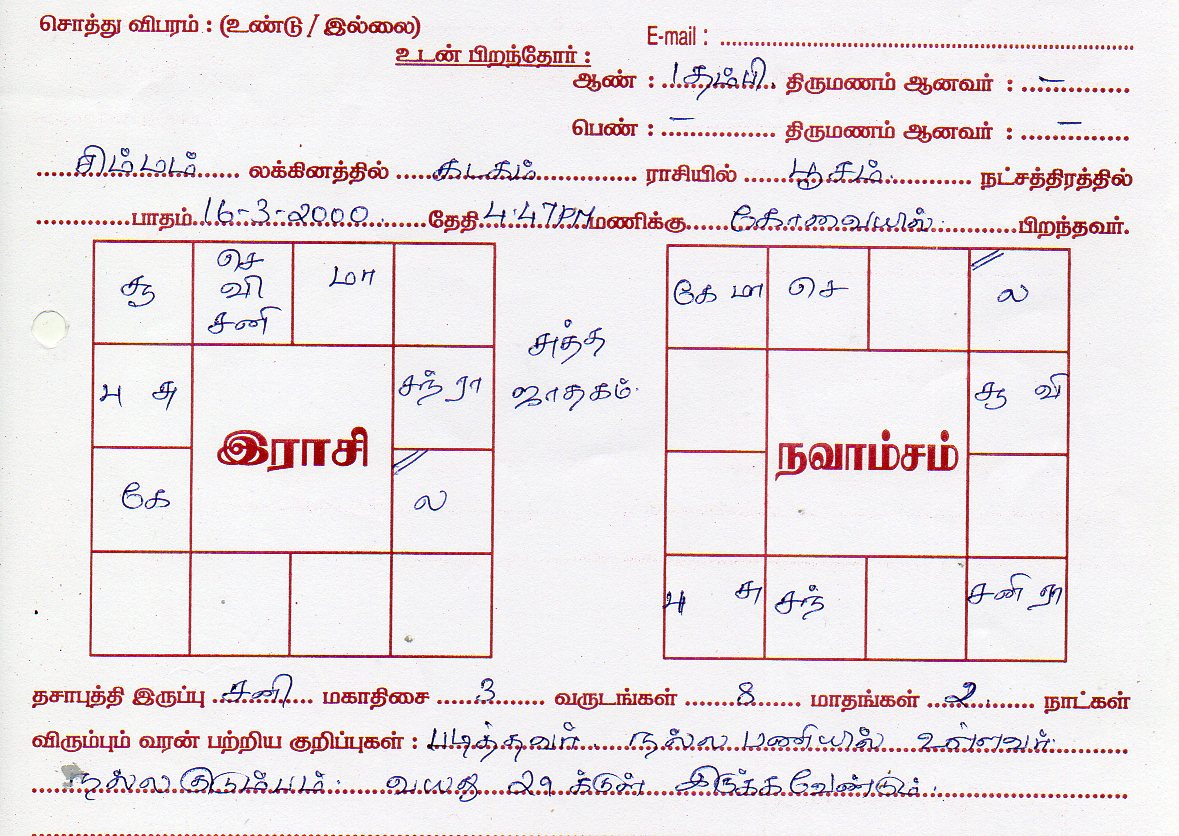 சொத்து விபரம் : (உண்டு / இல்லை)
E-mail :
உடன் பிறந்தோர் :
ஆண் : 1 தம்பி. திருமணம் ஆனவர் : –
பெண் : – திருமணம் ஆனவர் : –
சிம்மம் லக்கினத்தில் கடகம் ராசியில் பூசம் நட்சத்திரத்தில்
பாதம் 16-3-2000 தேதி 4.47PM மணிக்கு கோவையில் பிறந்தவர்.
சூ செ வி சனி மா
பு சு சந் ரா
இராசி
கே ல
சுத்த
ஜாதகம்
கே மா செ ல
சூ வி
நவாம்சம்
பு சு சந் சனி ரா
தசாபுத்தி இருப்பு சனி மகாதிசை 3 வருடங்கள் 8 மாதங்கள் 2 நாட்கள்
விரும்பும் வரன் பற்றிய குறிப்புகள் : படித்தவர் நல்ல பணியில் உள்ளவர்
நல்ல குடும்பம் வயது 29 க்குள் இருக்க வேண்டும்